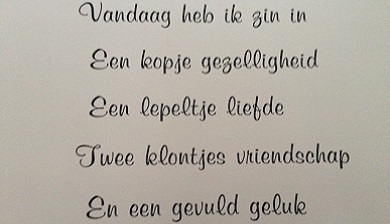 Vandaag heb ik zin in
Een kopje gezelligheid
Een lepeltje liefde
Twee klontjes vriendschap
En een gevuld geluk